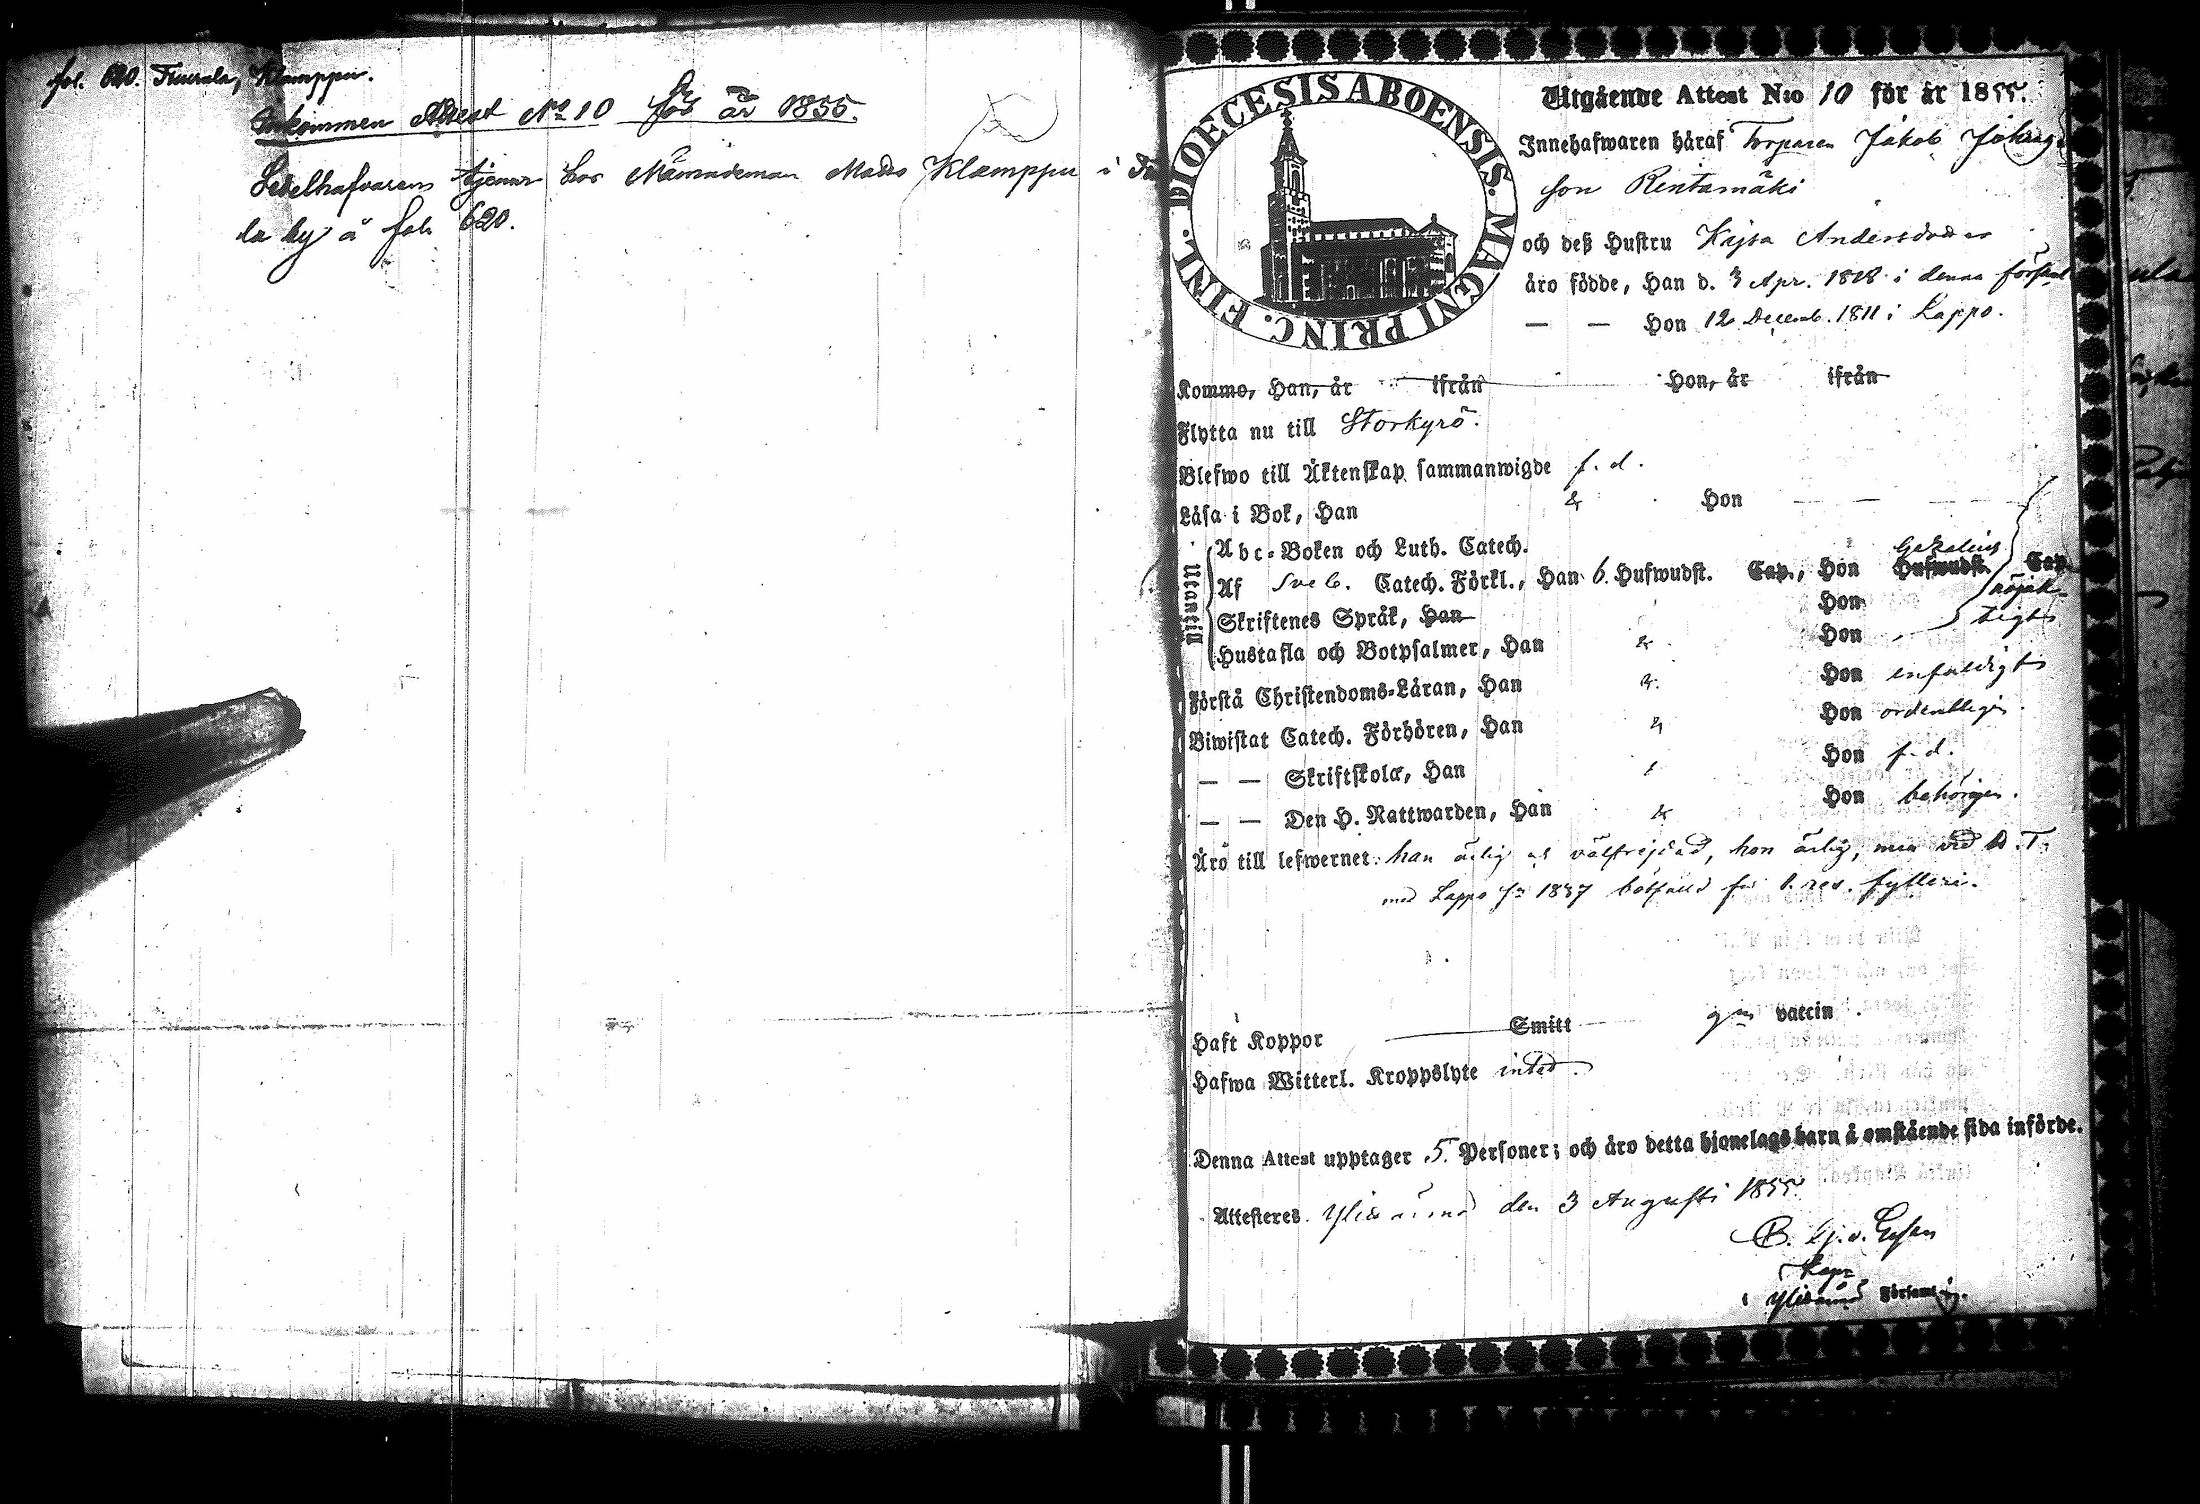 fol. 620. Tuurala, Klamppu.
Inkommen Attest No 10 för år 1855.
Sedelhafvaren tjenar hos Nämndeman Mats Klamppu i
la by å fol. 620.
DIOECESIS ABOENSIS. MAGNI PRINC. FINL.
Utgående Attest N:o 10 för år 1855.
Innehafwaren häraf Torparen Jakob
son Rintamäki
och deß Hustru Kajsa Andersdotter
äro födde, Han d. 3 Apr. 1818 i denna förs
— — Hon 12 Decemb. 1811 i Lappo.
Komme, Han, år ifrån Hon, år ifrån
Flytta nu till Storkyrö.
Blefwo till Äktenskap sammanwigde f. d.
Läsa i Bok, Han & Hon — — —
Utantill
Abc-Boken och Luth. Catech.
Af Sveb. Catech. Förkl., Han 6 Hufwudst. Cap., Hon Gezelius Hufwudst. Cap.
Skriftenes Språk, Han Hon nöjak-
Hustafla och Botpsalmer, Han & Hon tigt
Förstå Christendoms-Läran, Han & Hon enfaldigt
Biwistat Catech. Förhören, Han & Hon ordentligen.
— — Skriftskola, Han Hon f. d.
— — Den H. Nattwarden, Han & Hon behörigen.
Äro till lefwernet: han ärlig och välfrejdad, hon ärlig, men vid H. T.
med Lappo 1837 bötfälld för 1. res. fylleri.
Haft Koppor Smitt gm vaccin.
Hafwa Witterl. Kroppslyte intet.
Denna Attest upptager 5. Personer; och äro detta hjonelags barn å omstående sida införde.
Attesteres. Ylistaro den 3 Augusti 1855.
Kapn
i Ylistaro Församling.